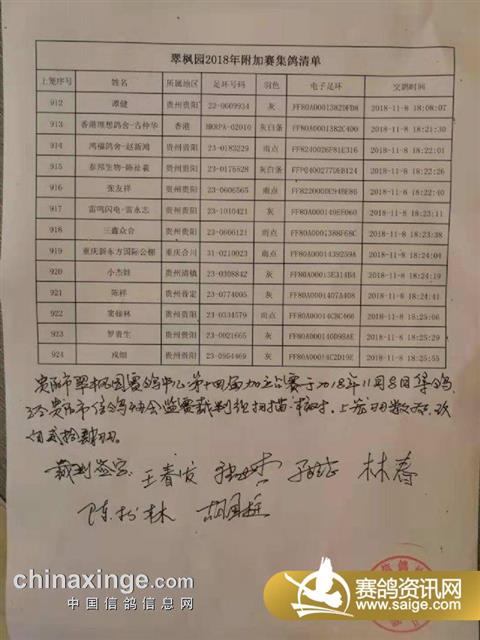 翠枫园2018年附加赛集鸽清单
上笼序号 姓名 所属地区 足环号码 羽色 电子足环 交鸽时间
912 谭健 贵州贵阳 22-0609934 灰 FF80A0001382DFD8 2018-11-8 18:08:07
913 香港理想鸽舍-古仲华 香港 HKRPA-02010 灰白条 FF80A0001382C400 2018-11-8 18:21:30
914 鸿福鸽舍-赵新鸿 贵州贵阳 23-0183229 雨点 FF8240026F81E316 2018-11-8 18:22:01
915 泰邦生物-陈祉羲 贵州贵阳 23-0175528 灰白条 2018-11-8 18:22:21
916 张友祥 贵州贵阳 23-0606565 雨点 2018-11-8 18:22:40
917 雷鸣闪电-雷永志 贵州贵阳 23-1010421 灰 2018-11-8 18:23:11
918 三鑫众合 贵州贵阳 23-0666121 雨点 FF80A0001388F68C 2018-11-8 18:23:38
919 重庆新东方国际公棚 重庆合川 31-0210023 雨点 FF80A0001439259A 2018-11-8 18:24:04
920 小杰娃 贵州清镇 23-0308842 灰 FF80A00013E314B4 2018-11-8 18:24:19
921 陈祥 贵州普定 23-0774005 灰 FF80A0001407A408 2018-11-8 18:24:41
922 窦俊林 贵州贵阳 23-0334579 雨点 FF80A00014CBC466 2018-11-8 18:25:06
923 罗贵生 贵州贵阳 23-0021665 灰 2018-11-8 18:25:29
924 戎烟 贵州贵阳 23-0954469 灰 FF80A00014C2D19E 2018-11-8 18:25:55
贵阳市翠枫园赛鸽中心第十四届加站赛于2018年11月8日集鸽
经贵阳市信鸽协会监票裁判组扫描 核对,上笼羽数为 玖
佰贰拾肆羽.
裁判签字 王春发 林春
陈松林
chinaxinge.com
中国信鸽信息网
赛鸽资讯网
www.saige.com